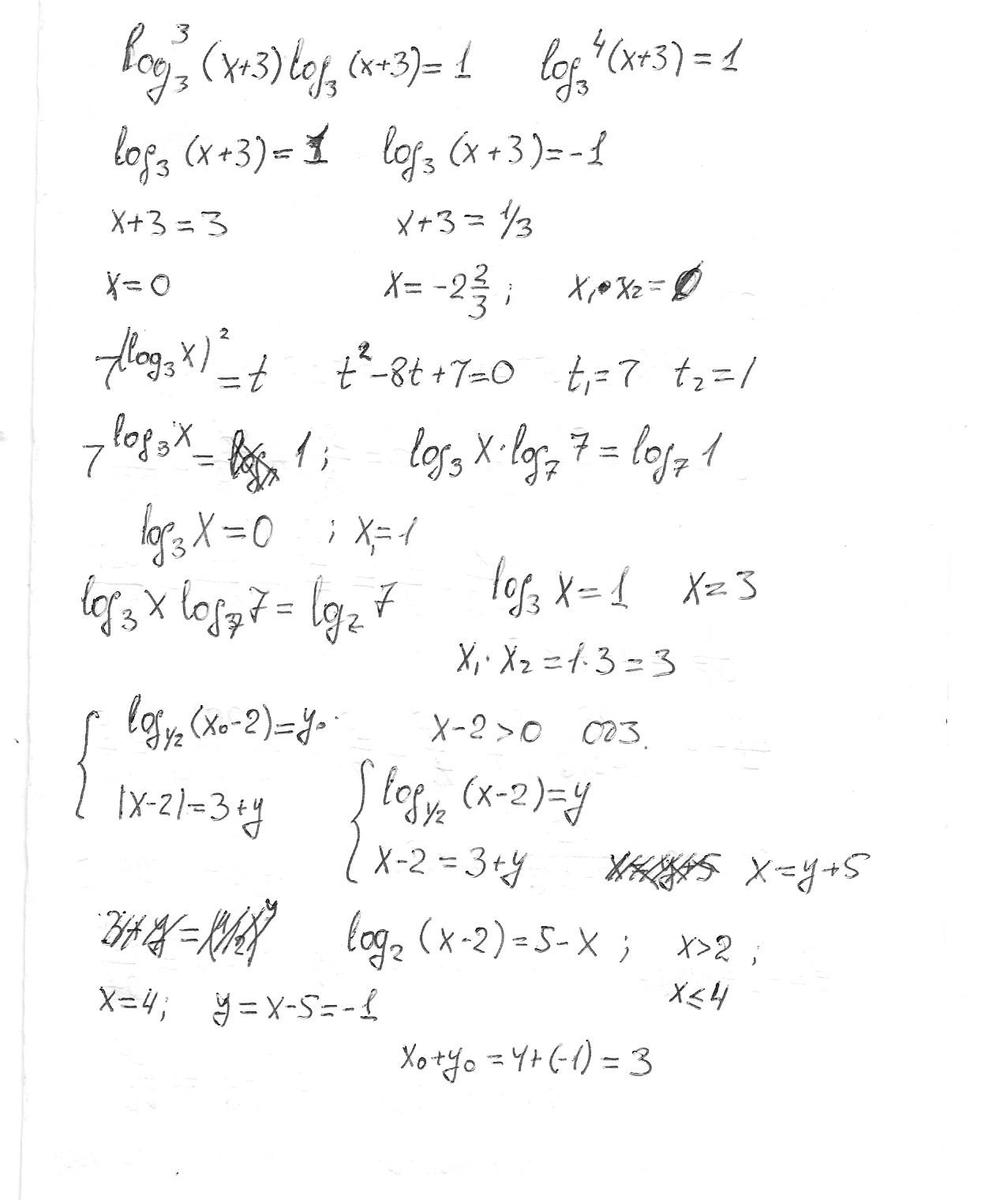 log₃³(x+3)log₃(x+3)=1 log₃⁴(x+3)=1
log₃(x+3)=1 log₃(x+3)=-1
x+3=3 x+3=1/3
x=0 x=-2 2/3; x₁•x₂=0
7(log₃x)²=t t²-8t+7=0 t₁=7 t₂=1
7^log₃x = 1; log₃x·log₇7=log₇1
log₃x=0 ; x₁=1
log₃x log₇7=log₂7 log₃x=1 x=3
x₁·x₂=1·3=3
{ log₁/₂(x₀-2)=y₀ x-2>0 ОДЗ.
|x-2|=3+y { log₁/₂(x-2)=y
x-2=3+y x=y+5
log₂(x-2)=5-x; x>2;
x=4; y=x-5=-1 x≤4
x₀+y₀=4+(-1)=3